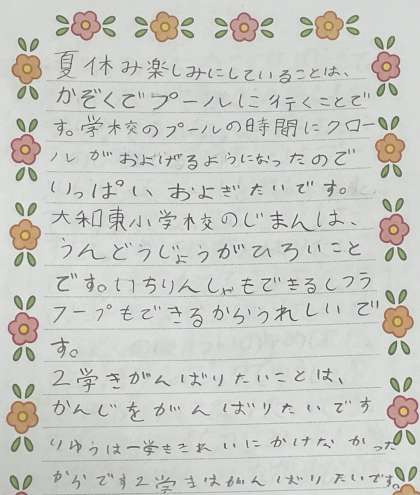 夏休み楽しみにしていることは、
かぞくでプールに行くことで
す。学校のプールの時間にクロー
ルがおよげるようになったので
いっぱいおよぎたいです。
大和東小学校のじまんは、
うんどうじょうがひろいこと
です。いちりんしゃもできるしフラ
フープもできるからうれしいで
す。
2学きがんばりたいことは、
かんじをがんばりたいです
りゆうは一学ききれいにかけなかった
からです2学きはがんばりたいです。